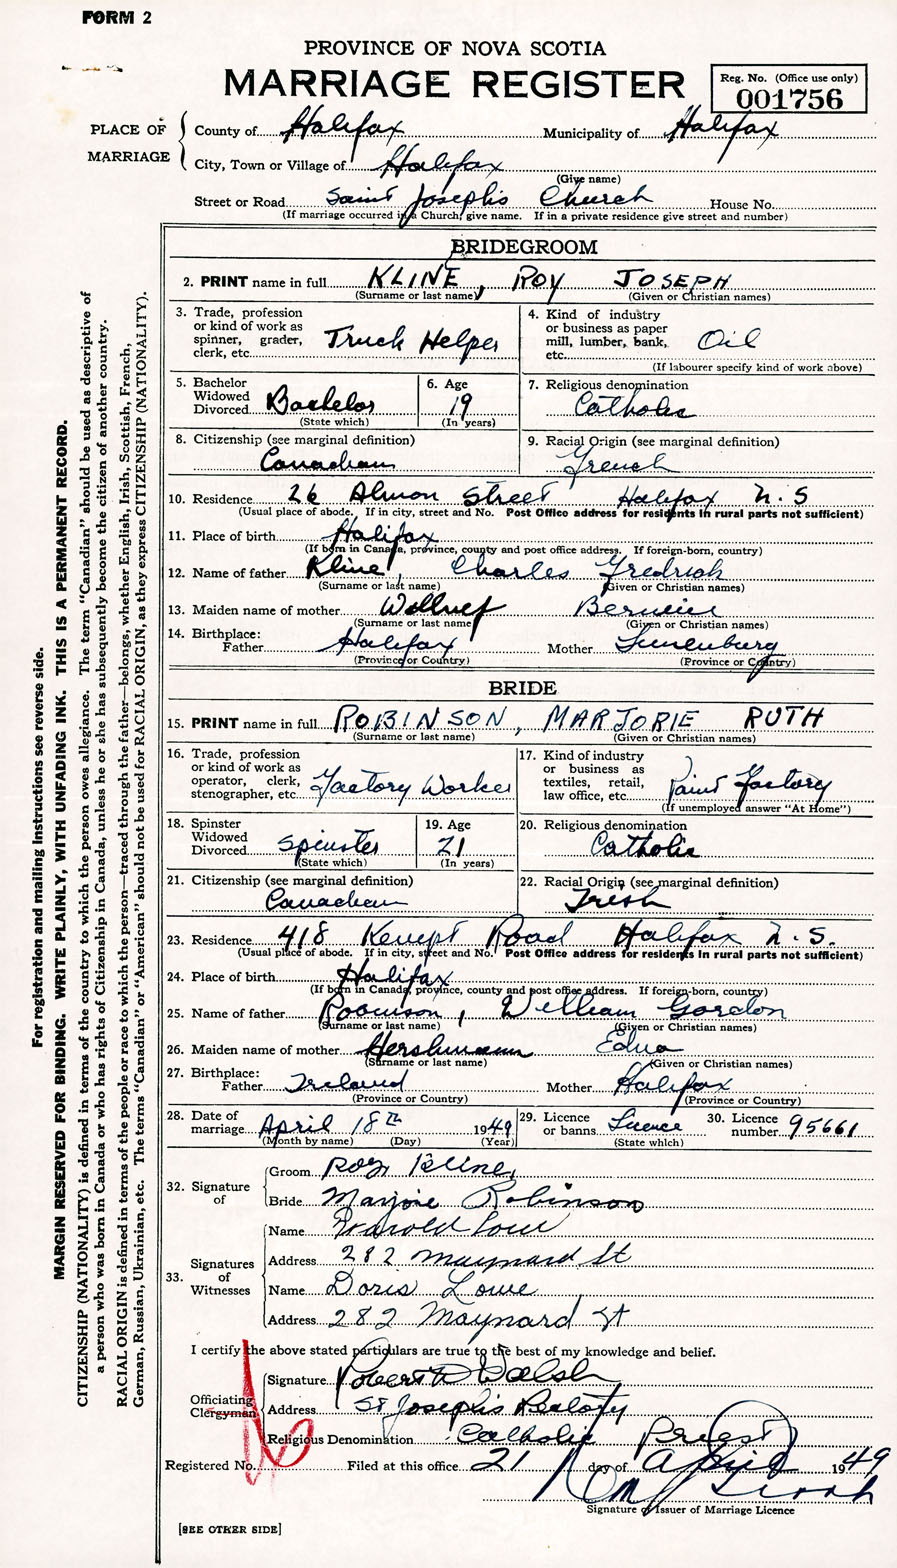 FORM 2
PROVINCE OF NOVA SCOTIA
MARRIAGE REGISTER
Reg. No. (Office use only)
001756
PLACE OF MARRIAGE
County of Halifax Municipality of Halifax
City, Town or Village of Halifax
(Give name)
Street or Road Saint Joseph's Church House No.
(If marriage occurred in a Church, give name. If in a private residence give street and number)
BRIDEGROOM
2. PRINT name in full KLINE, ROY JOSEPH
(Surname or last name) (Given or Christian names)
3. Trade, profession
or kind of work as
spinner, grader,
clerk, etc. Truck Helper
4. Kind of industry
or business as paper
mill, lumber, bank,
etc. Oil
(If labourer specify kind of work above)
5. Bachelor
Widowed
Divorced Bachelor
(State which)
6. Age
19
(In years)
7. Religious denomination
Catholic
8. Citizenship (see marginal definition)
Canadian
9. Racial Origin (see marginal definition)
French
10. Residence 26 Almon Street Halifax N.S
(Usual place of abode. If in city, street and No. Post Office address for residents in rural parts not sufficient)
11. Place of birth Halifax
(If born in Canada, province, county and post office address. If foreign-born, country)
12. Name of father Kline, Charles Fredrick
(Surname or last name) (Given or Christian names)
13. Maiden name of mother
(Surname or last name) (Given or Christian names)
14. Birthplace:
Father Halifax Mother Lunenburg
(Province or Country) (Province or Country)
BRIDE
15. PRINT name in full ROBINSON, MARJORIE RUTH
(Surname or last name) (Given or Christian names)
16. Trade, profession
or kind of work as
operator, clerk,
stenographer, etc. Factory Worker
17. Kind of industry
or business as
textiles, retail,
law office, etc. Paint Factory
(If unemployed answer "At Home")
18. Spinster
Widowed
Divorced Spinster
(State which)
19. Age
21
(In years)
20. Religious denomination
Catholic
21. Citizenship (see marginal definition)
Canadian
22. Racial Origin (see marginal definition)
Irish
23. Residence 418 Kempt Road Halifax N.S.
(Usual place of abode. If in city, street and No. Post Office address for residents in rural parts not sufficient)
24. Place of birth Halifax
(If born in Canada, province, county and post office address. If foreign-born, country)
25. Name of father Robinson, William Gordon
(Surname or last name) (Given or Christian names)
26. Maiden name of mother Hershmann Edna
(Surname or last name) (Given or Christian names)
27. Birthplace:
Father Ireland Mother Halifax
(Province or Country) (Province or Country)
28. Date of
marriage April 18th 1949
(Month by name) (Day) (Year)
29. Licence
or banns Licence
(State which)
30. Licence
number 95661
32. Signature of
Groom Roy Kline
Bride Marjorie Robinson
33. Signatures of Witnesses
Name Harold Lowe
Address 282 Maynard St
Name Doris Lowe
Address 282 Maynard St
I certify the above stated particulars are true to the best of my knowledge and belief.
Officiating Clergyman
Signature Robert D Walsh
Address St Joseph's Rectory
Religious Denomination Catholic Priest
Registered No. Filed at this office 21 day of April 1949
Signature of Issuer of Marriage Licence
[SEE OTHER SIDE]
For registration and mailing instructions see reverse side.
MARGIN RESERVED FOR BINDING. WRITE PLAINLY, WITH UNFADING INK. THIS IS A PERMANENT RECORD.
CITIZENSHIP (NATIONALITY) is defined in terms of the country to which the person owes allegiance. The term "Canadian" should be used as descriptive of
a person who was born in Canada or who has rights of Citizenship in Canada, unless he or she has subsequently become the citizen of another country.
RACIAL ORIGIN is defined in terms of the people or race to which the person—traced through the father—belongs, whether English, Irish, Scottish, French,
German, Russian, Ukrainian, etc. The terms "Canadian" or "American" should not be used for RACIAL ORIGIN, as they express CITIZENSHIP (NATIONALITY).